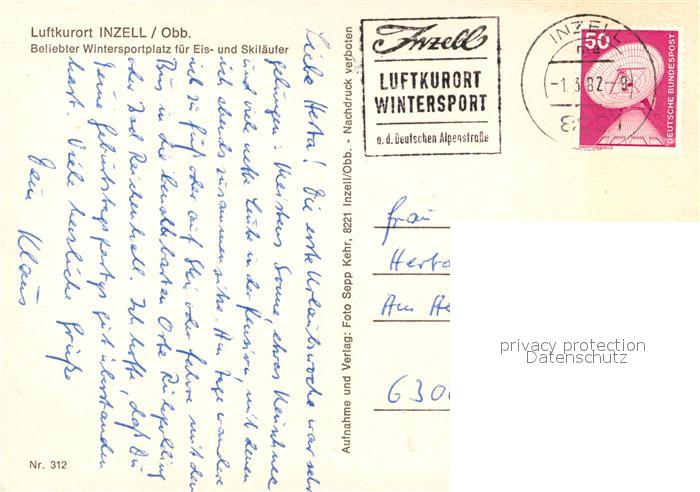 Luftkurort INZELL / Obb.
Beliebter Wintersportplatz für Eis- und Skiläufer
Liebe Herta! Die erste Urlaubswoche war sehr
gelungen: Meistens Sonne, etwas Neuschnee
und viele nette Leute in der Pension, mit denen
ich abends zusammensitze. Am Tage wandere
ich zu Fuß oder auf Ski oder fahre mit dem
Bus in die benachbarten Orte Ruhpolding
oder Bad Reichenhall. Ich hoffe, daß Du
Deine Geburtstagspartys gut überstanden
hast. Viele herzliche Grüße
Dein Klaus
Nr. 312
Aufnahme und Verlag: Foto Sepp Kehr, 8221 Inzell/Obb. - Nachdruck verboten
Inzell
LUFTKURORT
WINTERSPORT
a. d. Deutschen Alpenstraße
INZELL
-1.3.82-9
50
DEUTSCHE BUNDESPOST
Frau
Herta
Am
630
privacy protection
Datenschutz